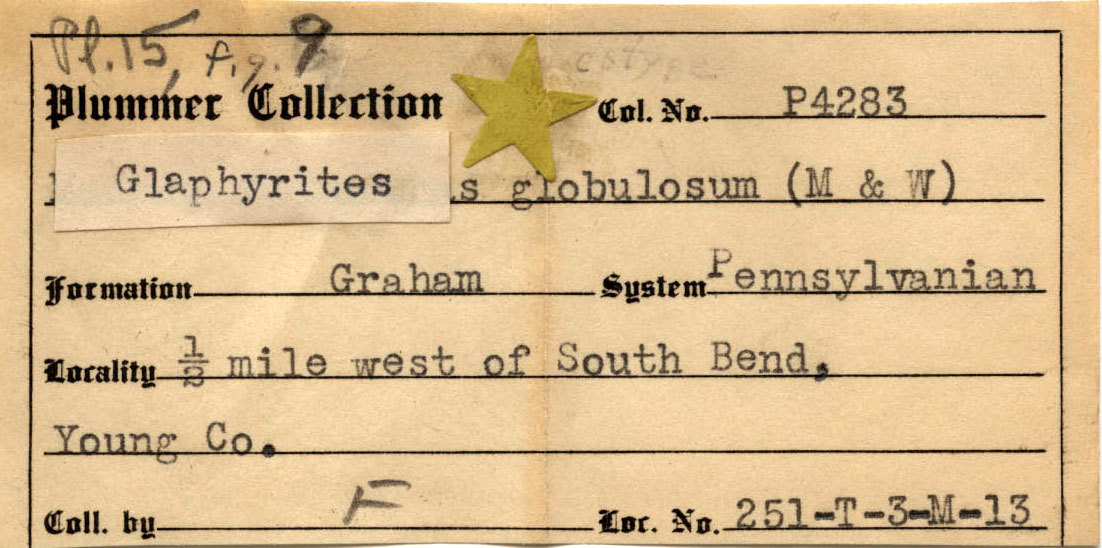 Pl. 15, fig. 9
Plummer Collection Col. No. P4283
Glaphyrites globulosum (M & W)
Formation Graham System Pennsylvanian
Locality ½ mile west of South Bend,
Young Co.
Coll. by F Loc. No. 251-T-3-M-13